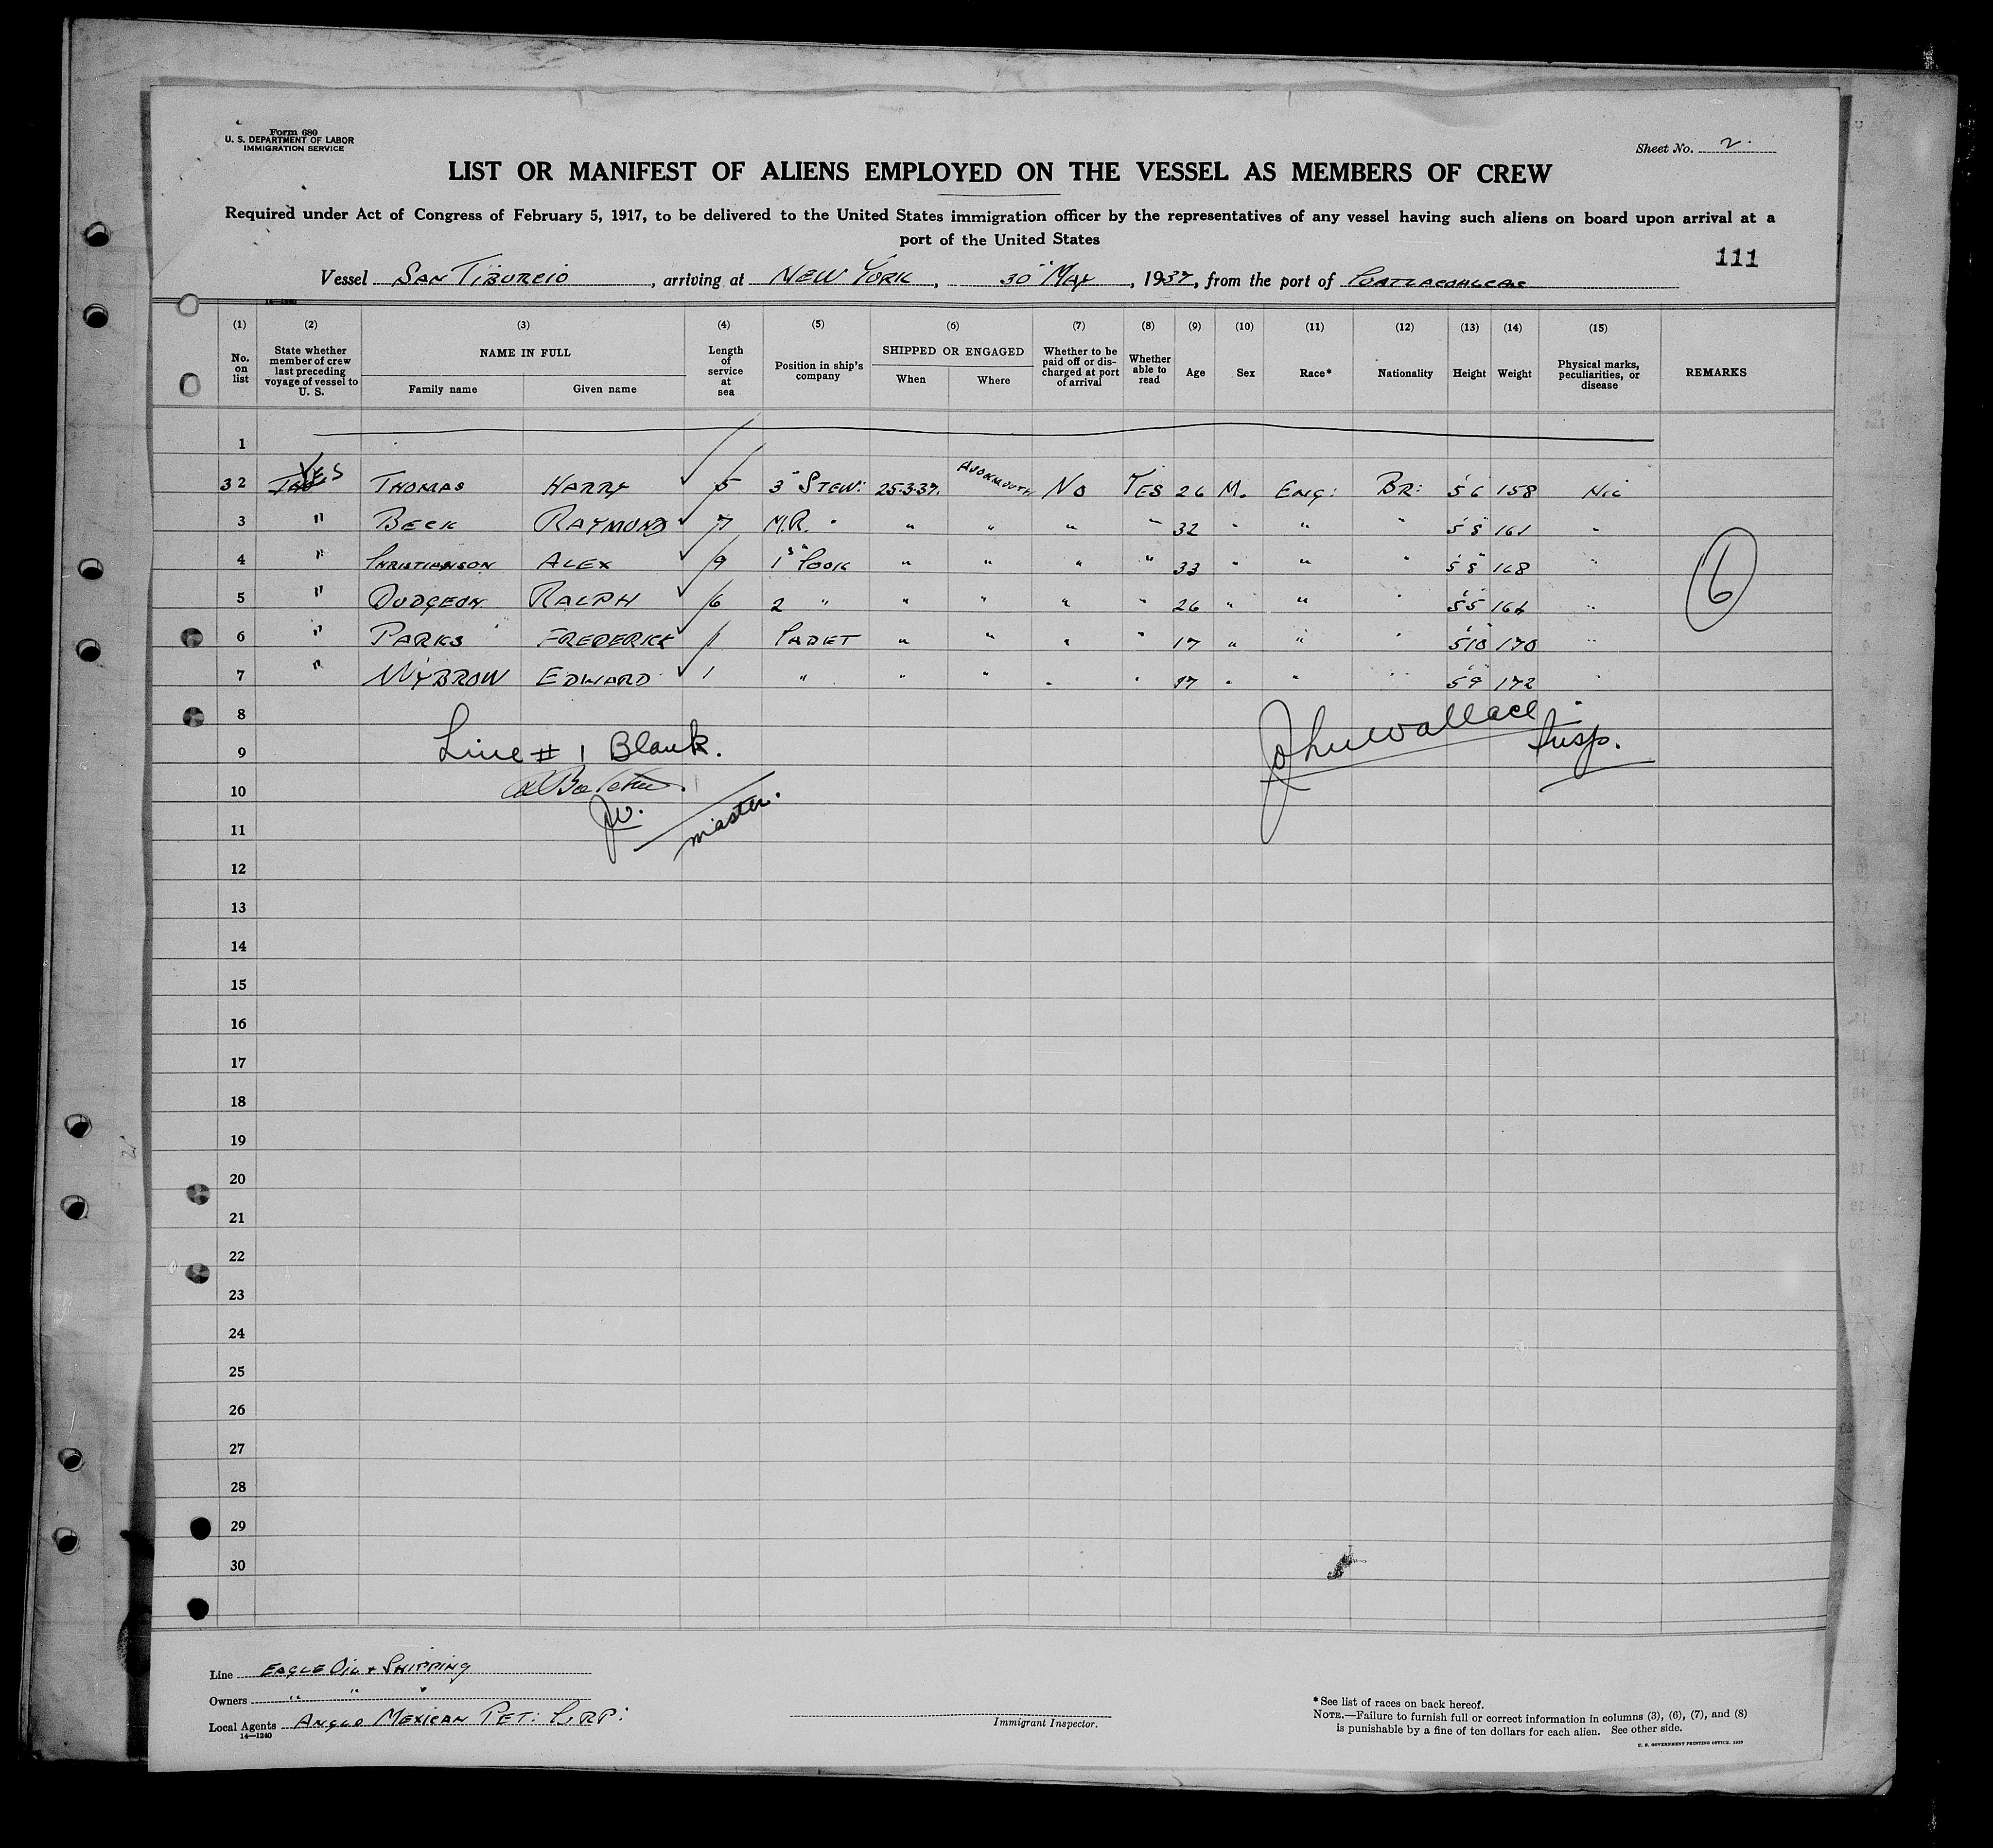 Form 680
U. S. DEPARTMENT OF LABOR
IMMIGRATION SERVICE
Sheet No. 2.
LIST OR MANIFEST OF ALIENS EMPLOYED ON THE VESSEL AS MEMBERS OF CREW
Required under Act of Congress of February 5, 1917, to be delivered to the United States immigration officer by the representatives of any vessel having such aliens on board upon arrival at a
port of the United States
111
Vessel San Tiburcio, arriving at New York, 30" May, 1937, from the port of
(1) (2) (3) (4) (5) (6) (7) (8) (9) (10) (11) (12) (13) (14) (15)
No. on list
State whether member of crew last preceding voyage of vessel to U. S.
NAME IN FULL
Family name
Given name
Length of service at sea
Position in ship's company
SHIPPED OR ENGAGED
When
Where
Whether to be paid off or discharged at port of arrival
Whether able to read
Age
Sex
Race*
Nationality
Height
Weight
Physical marks, peculiarities, or disease
REMARKS
1
32 YES THOMAS HARRY 5 3" STEW: 25.3.37. AVONMOUTH NO YES 26 M. ENG: BR: 5'6 158 NIL
3 " BECK RAYMOND 7 M.R. " " " " " 32 " " " 5'8" 161 "
4 " CHRISTIANSON ALEX 9 1st COOK " " " " 33 " " " 5'8" 168 "
5 " DUDGEON RALPH 6 2 " " " " " 26 " " " 5'5" 164 "
6 " PARKS FREDERICK 1 CADET " " " " 17 " " " 5'10" 170 "
7 " WYBROW EDWARD 1 " " " " " 17 " " " 5'9" 172 "
6
8
9 Line # 1 Blank.
John Wallace Insp.
10
JW.
master.
11
12
13
14
15
16
17
18
19
20
21
22
23
24
25
26
27
28
29
30
Line EAGLE OIL & SHIPPING
Owners " " "
Local Agents ANGLO MEXICAN PET: CORP:
14—1240
Immigrant Inspector.
* See list of races on back hereof.
NOTE.—Failure to furnish full or correct information in columns (3), (6), (7), and (8)
is punishable by a fine of ten dollars for each alien. See other side.
U. S. GOVERNMENT PRINTING OFFICE. 1929